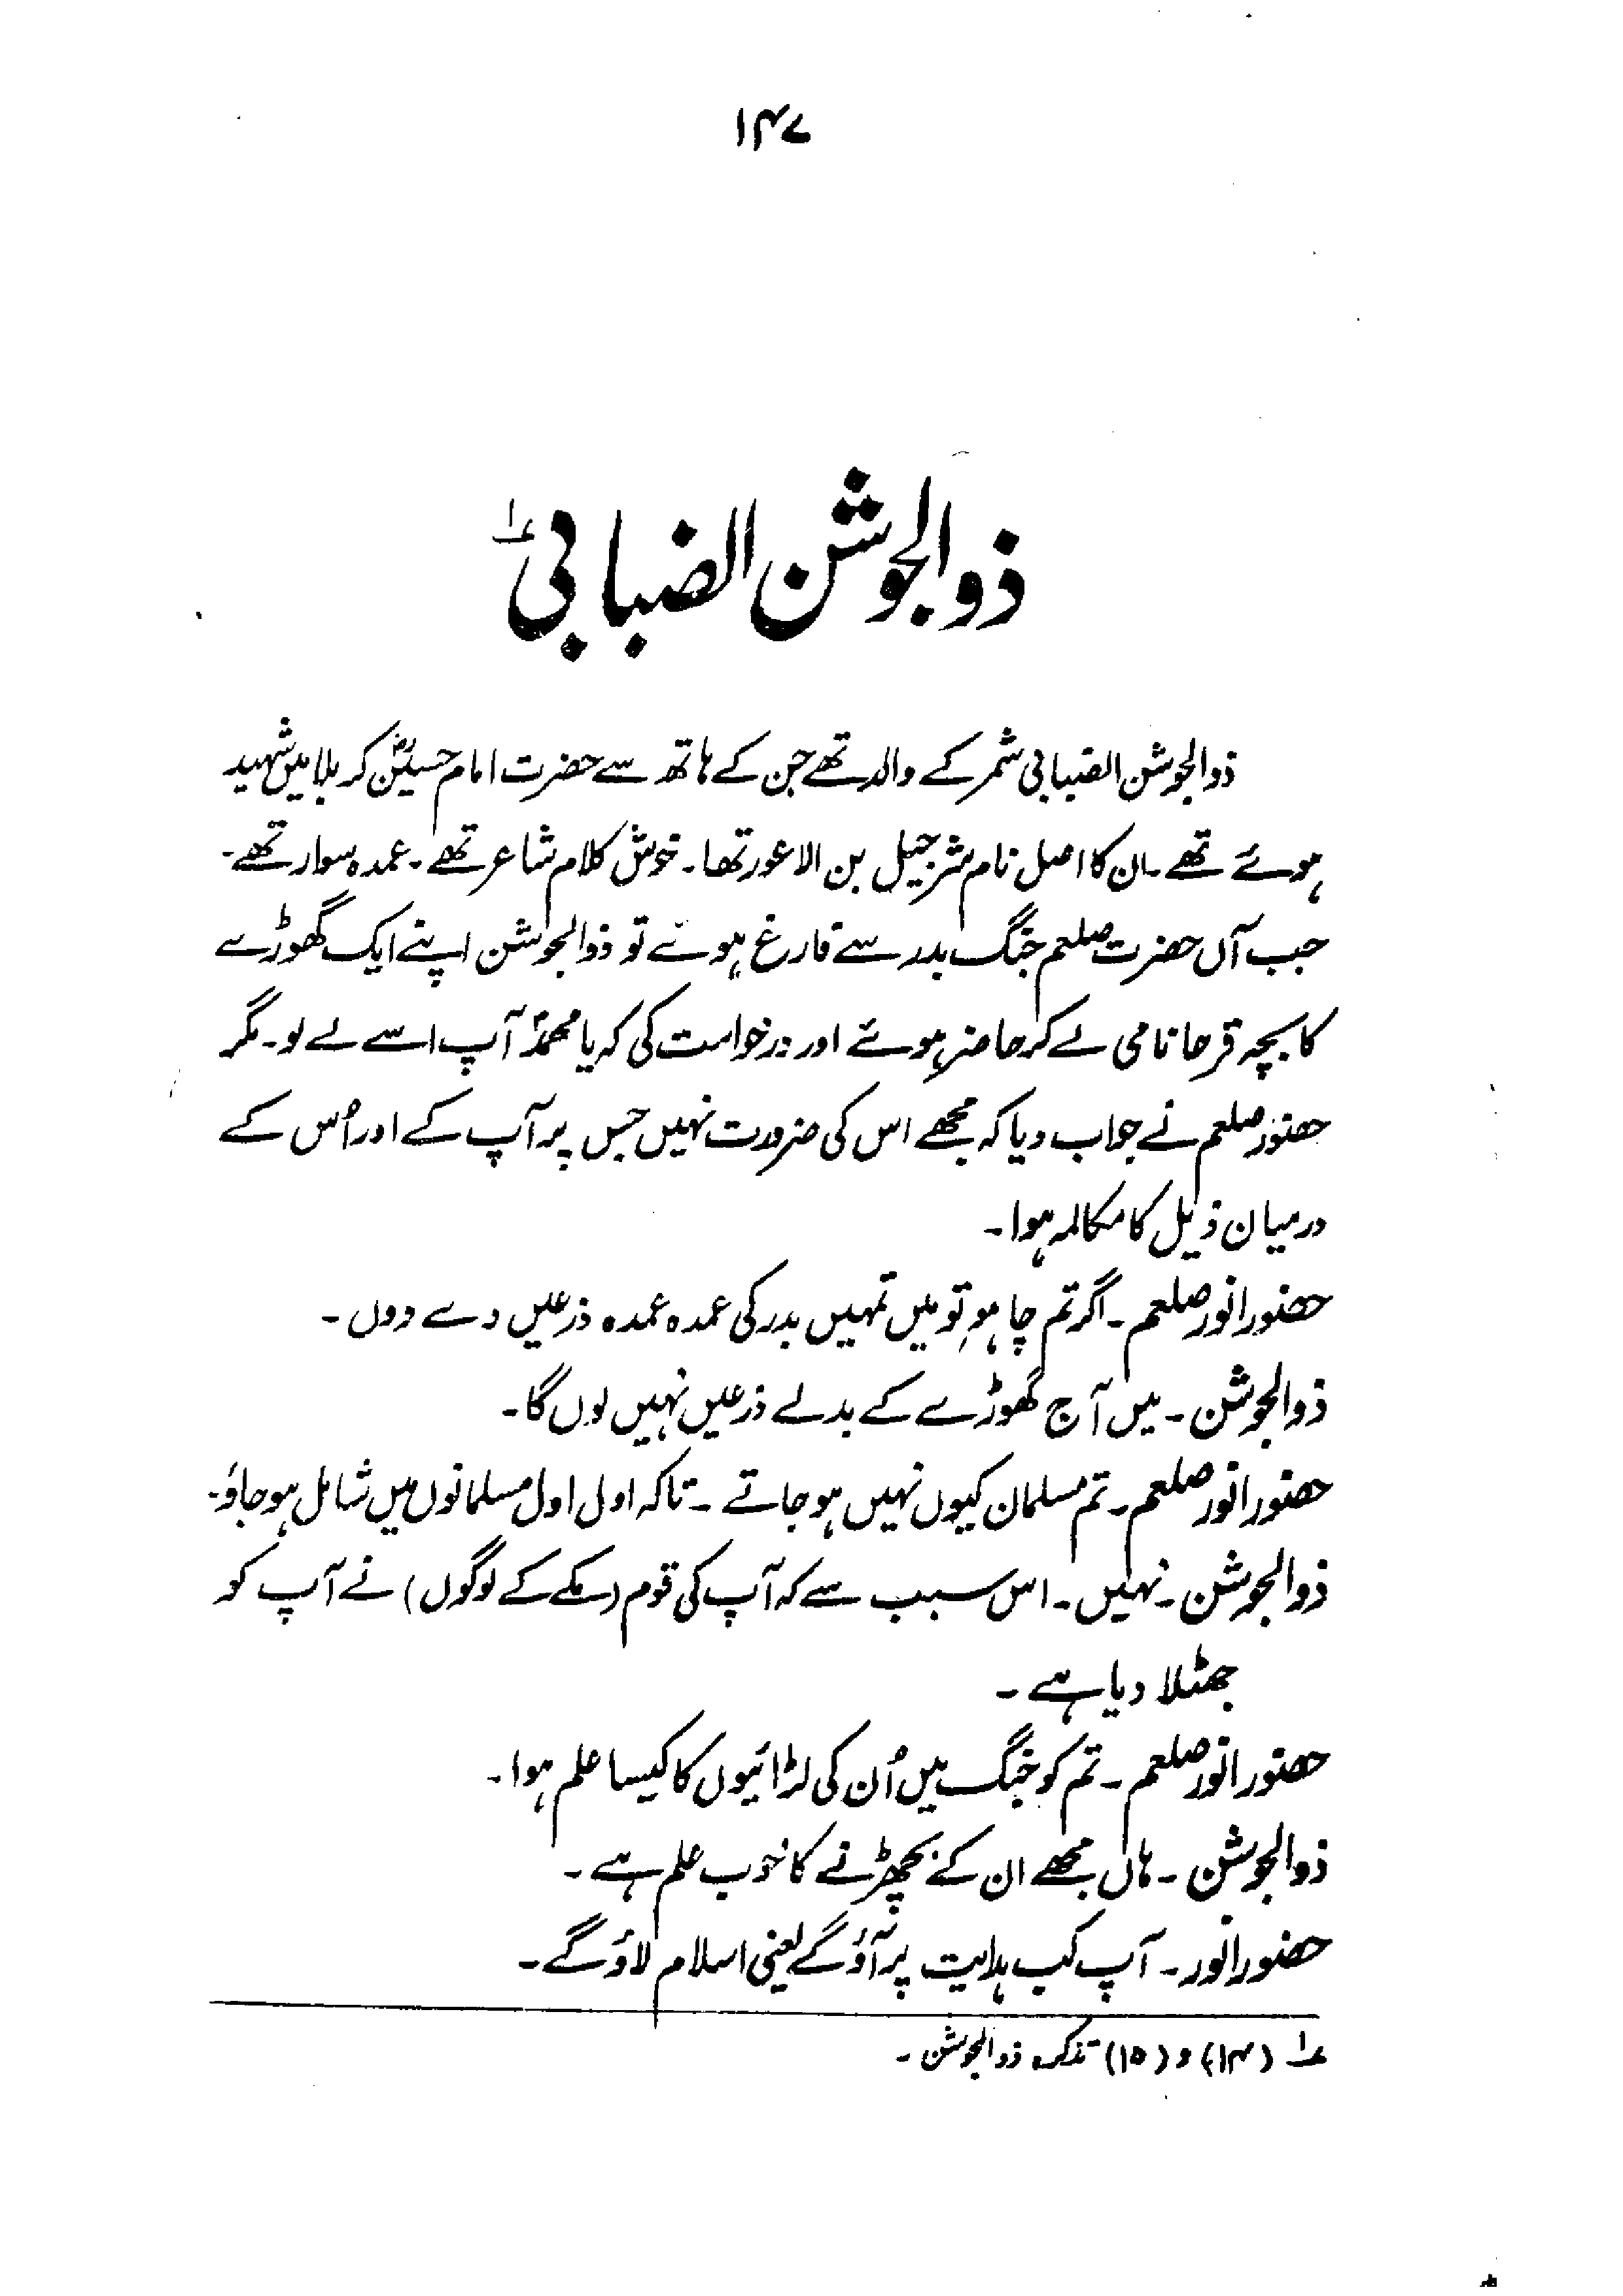 ۱۴۷
ذوالجوشن الضبابی ؎۱
ذوالجوشن الضبابی شمر کے والد تھے جن کے ہاتھ سے حضرت امام حسینؓ کربلا میں شہید
ہوئے تھے ۔ ان کا اصل نام شرجیل بن الاعور تھا ۔ خوش کلام شاعر تھے ۔ عمدہ سوار تھے ۔
جب آں حضرت صلعم جنگ بدر سے فارغ ہوئے تو ذوالجوشن اپنے ایک گھوڑے
کا بچہ قرحا نامی لے کر حاضر ہوئے اور درخواست کی کہ یا محمدؐ آپ اسے لے لو ۔ مگر
حضور صلعم نے جواب دیا کہ مجھے اس کی ضرورت نہیں جس پر آپ کے اور اُس کے
درمیان ذیل کا مکالمہ ہوا ۔
حضور انور صلعم ۔ اگر تم چاہو تو میں تمہیں بدر کی عمدہ عمدہ ذرعیں دے دوں ۔
ذوالجوشن ۔ میں آج گھوڑے کے بدلے ذرعیں نہیں لوں گا ۔
حضور انور صلعم ۔ تم مسلمان کیوں نہیں ہو جاتے ۔ تاکہ اول اول مسلمانوں میں شامل ہو جاؤ ۔
ذوالجوشن ۔ نہیں ۔ اس سبب سے کہ آپ کی قوم (مکے کے لوگوں) نے آپ کو
جھٹلا دیا ہے ۔
حضور انور صلعم ۔ تم کو جنگ میں اُن کی لڑائیوں کا کیسا علم ہوا ۔
ذوالجوشن ۔ ہاں مجھے ان کے بچھڑنے کا خوب علم ہے ۔
حضور انور ۔ آپ کب ہدایت پر آؤ گے یعنی اسلام لاؤ گے ۔
؎۱ (۱۴) و (۱۵) تذکرہ ذوالجوشن ۔